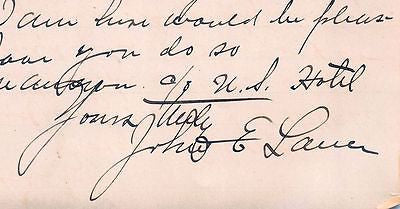 I am sure would be pleas
have you do so
c/o U.S. Hotel
Yours truly
John E Lauer